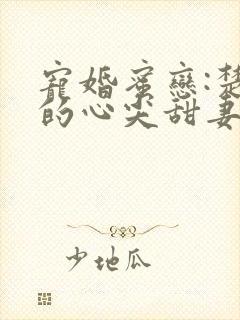 寵婚蜜戀:楚
的心尖甜妻
少地瓜